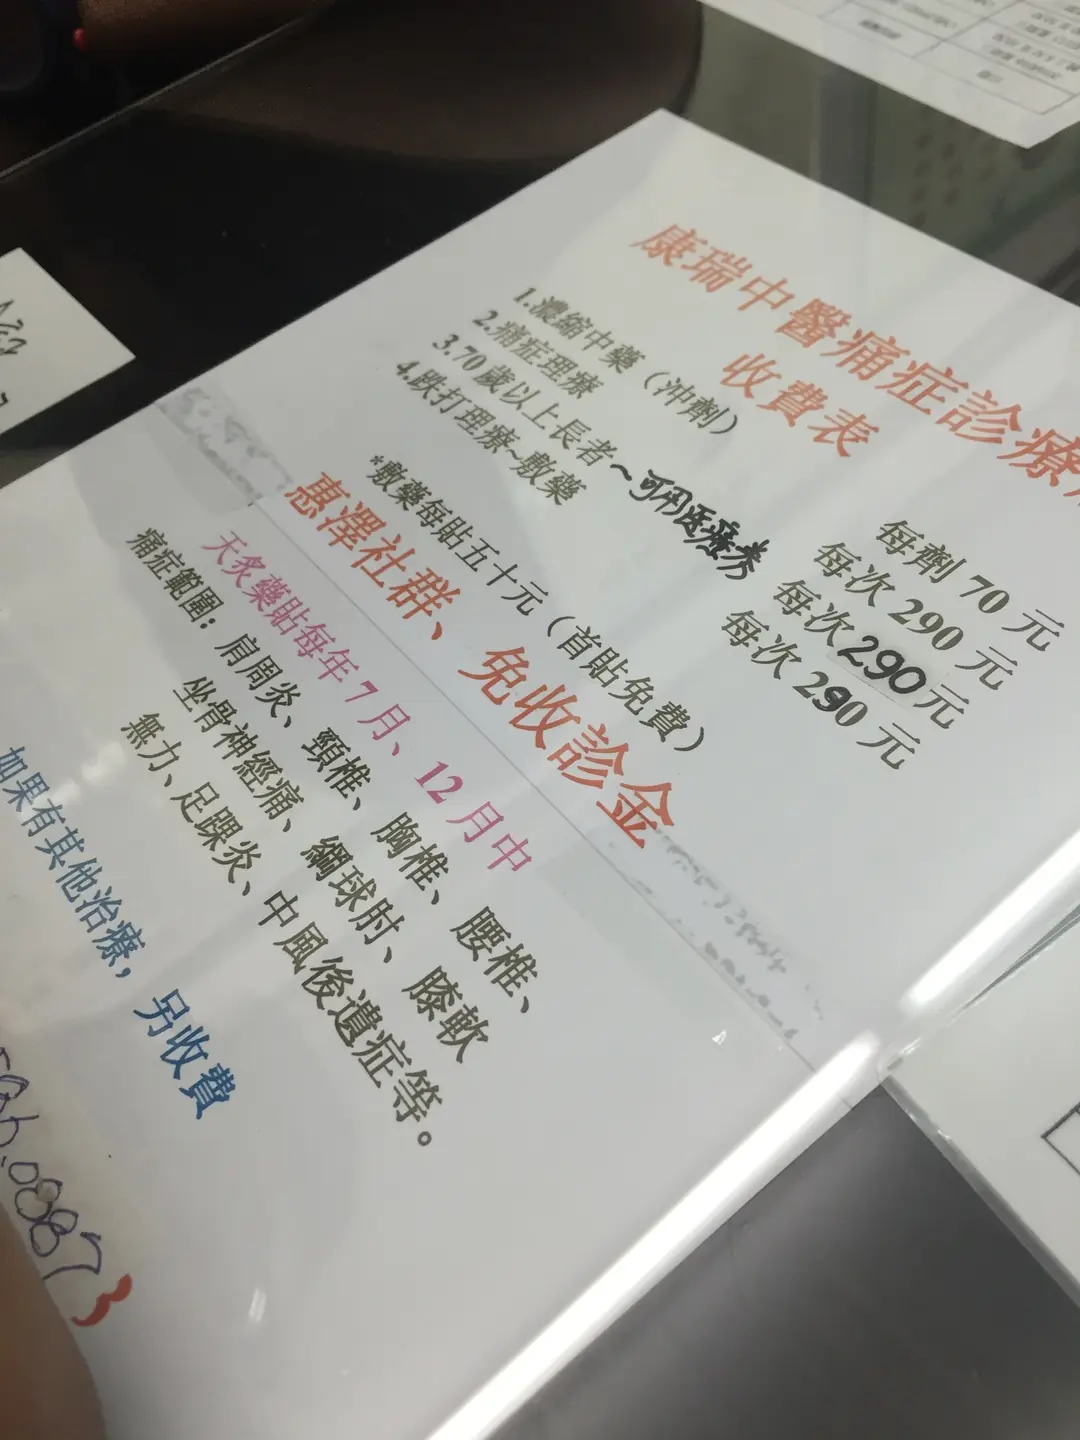 康瑞中醫痛症診療
收費表
1.濃縮中藥（沖劑） 每劑 70 元
2.痛症理療 每次 290 元
3.70 歲以上長者~可用医療券 每次 290 元
4.跌打理療~敷藥 每次 290 元
*敷藥每貼五十元（首貼免費）
惠澤社群、免收診金
天炙藥貼每年 7 月、12 月中
痛症範圍：肩周炎、頸椎、胸椎、腰椎、
坐骨神經痛、網球肘、膝軟
無力、足踝炎、中風後遺症等。
如果有其他治療，另收費
08873